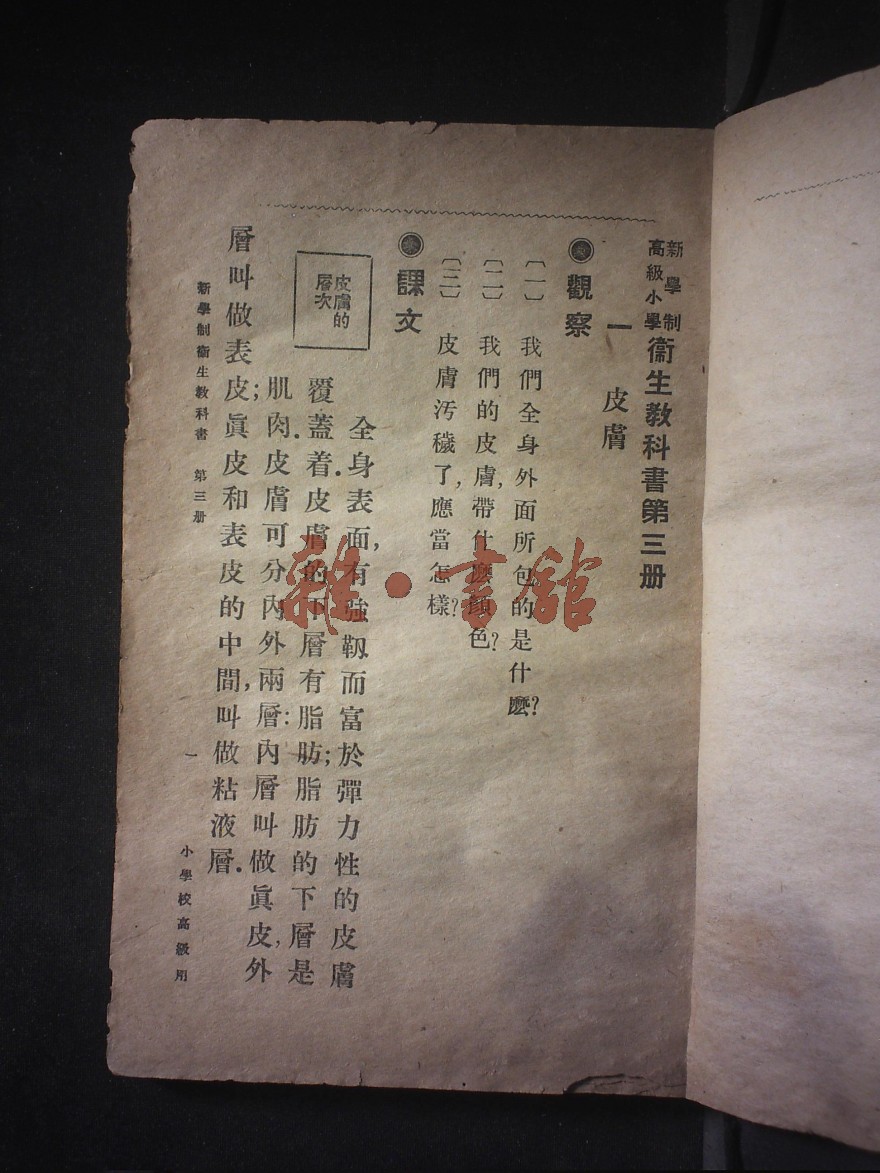 新學制
高級小學
衞生教科書第三册
一 皮膚
觀察
〔一〕 我們全身外面所包的是什麼?
〔二〕 我們的皮膚,帶什麼顏色?
〔三〕 皮膚汚穢了,應當怎樣?
課文
皮膚的
層次
全身表面,有強韌而富於彈力性的皮膚
覆蓋着.皮膚的下層有脂肪;脂肪的下層是
肌肉.皮膚可分內外兩層:內層叫做眞皮,外
層叫做表皮;眞皮和表皮的中間,叫做粘液層.
新學制衞生教科書 第三册 一 小學校高級用
雜·書館